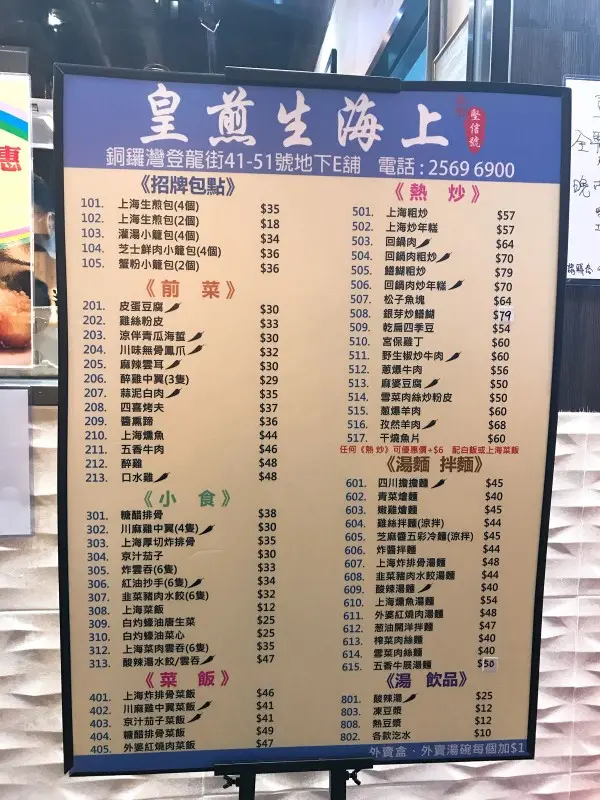 皇煎生海上
堅信號
銅鑼灣登龍街41-51號地下E舖 電話：2569 6900
《招牌包點》
101. 上海生煎包(4個) $35
102. 上海生煎包(2個) $18
103. 灌湯小籠包(4個) $34
104. 芝士鮮肉小籠包(4個) $36
105. 蟹粉小籠包(2個) $36
《前 菜》
201. 皮蛋豆腐 $30
202. 雞絲粉皮 $33
203. 涼伴青瓜海蜇 $30
204. 川味無骨鳳爪 $32
205. 麻辣雲耳 $30
206. 醉雞中翼(3隻) $29
207. 蒜泥白肉 $35
208. 四喜烤夫 $37
209. 醬燻蹄 $36
210. 上海燻魚 $44
211. 五香牛肉 $46
212. 醉雞 $48
213. 口水雞 $48
《小 食》
301. 糖醋排骨 $38
302. 川麻雞中翼(4隻) $30
303. 上海厚切炸排骨 $35
304. 京汁茄子 $30
305. 炸雲吞(6隻) $33
306. 紅油抄手(6隻) $34
307. 韭菜豬肉水餃(6隻) $32
308. 上海菜飯 $12
309. 白灼蠔油唐生菜 $25
310. 白灼蠔油菜心 $25
312. 上海菜肉雲吞(6隻) $35
313. 酸辣湯水餃/雲吞 $47
《菜 飯》
401. 上海炸排骨菜飯 $46
402. 川麻雞中翼菜飯 $41
403. 京汁茄子菜飯 $41
404. 糖醋排骨菜飯 $49
405. 外婆紅燒肉菜飯 $47
《熱 炒》
501. 上海粗炒 $57
502. 上海炒年糕 $57
503. 回鍋肉 $64
504. 回鍋肉粗炒 $70
505. 鱔糊粗炒 $79
506. 回鍋肉炒年糕 $70
507. 松子魚塊 $64
508. 銀芽炒鱔糊 $79
509. 乾扁四季豆 $54
510. 宮保雞丁 $60
511. 野生椒炒牛肉 $60
512. 蔥爆牛肉 $56
513. 麻婆豆腐 $50
514. 雪菜肉絲炒粉皮 $50
515. 蔥爆羊肉 $60
516. 孜然羊肉 $68
517. 干燒魚片 $60
任何《熱 炒》可優惠價+$6 配白飯或上海菜飯
《湯麵 拌麵》
601. 四川擔擔麵 $45
602. 青菜燴麵 $40
603. 嫩雞燴麵 $45
604. 雞絲拌麵(涼拌) $44
605. 芝麻醬五彩冷麵(涼拌) $45
606. 炸醬拌麵 $44
607. 上海炸排骨湯麵 $48
608. 韭菜豬肉水餃湯麵 $44
609. 酸辣湯麵 $40
610. 上海燻魚湯麵 $54
611. 外婆紅燒肉湯麵 $48
612. 蔥油開洋拌麵 $47
613. 榨菜肉絲麵 $40
614. 雪菜肉絲麵 $40
615. 五香牛展湯麵 $50
《湯 飲品》
801. 酸辣湯 $25
803. 凍豆漿 $12
808. 熱豆漿 $12
802. 各款汽水 $10
外賣盒、外賣湯碗每個加$1
惠